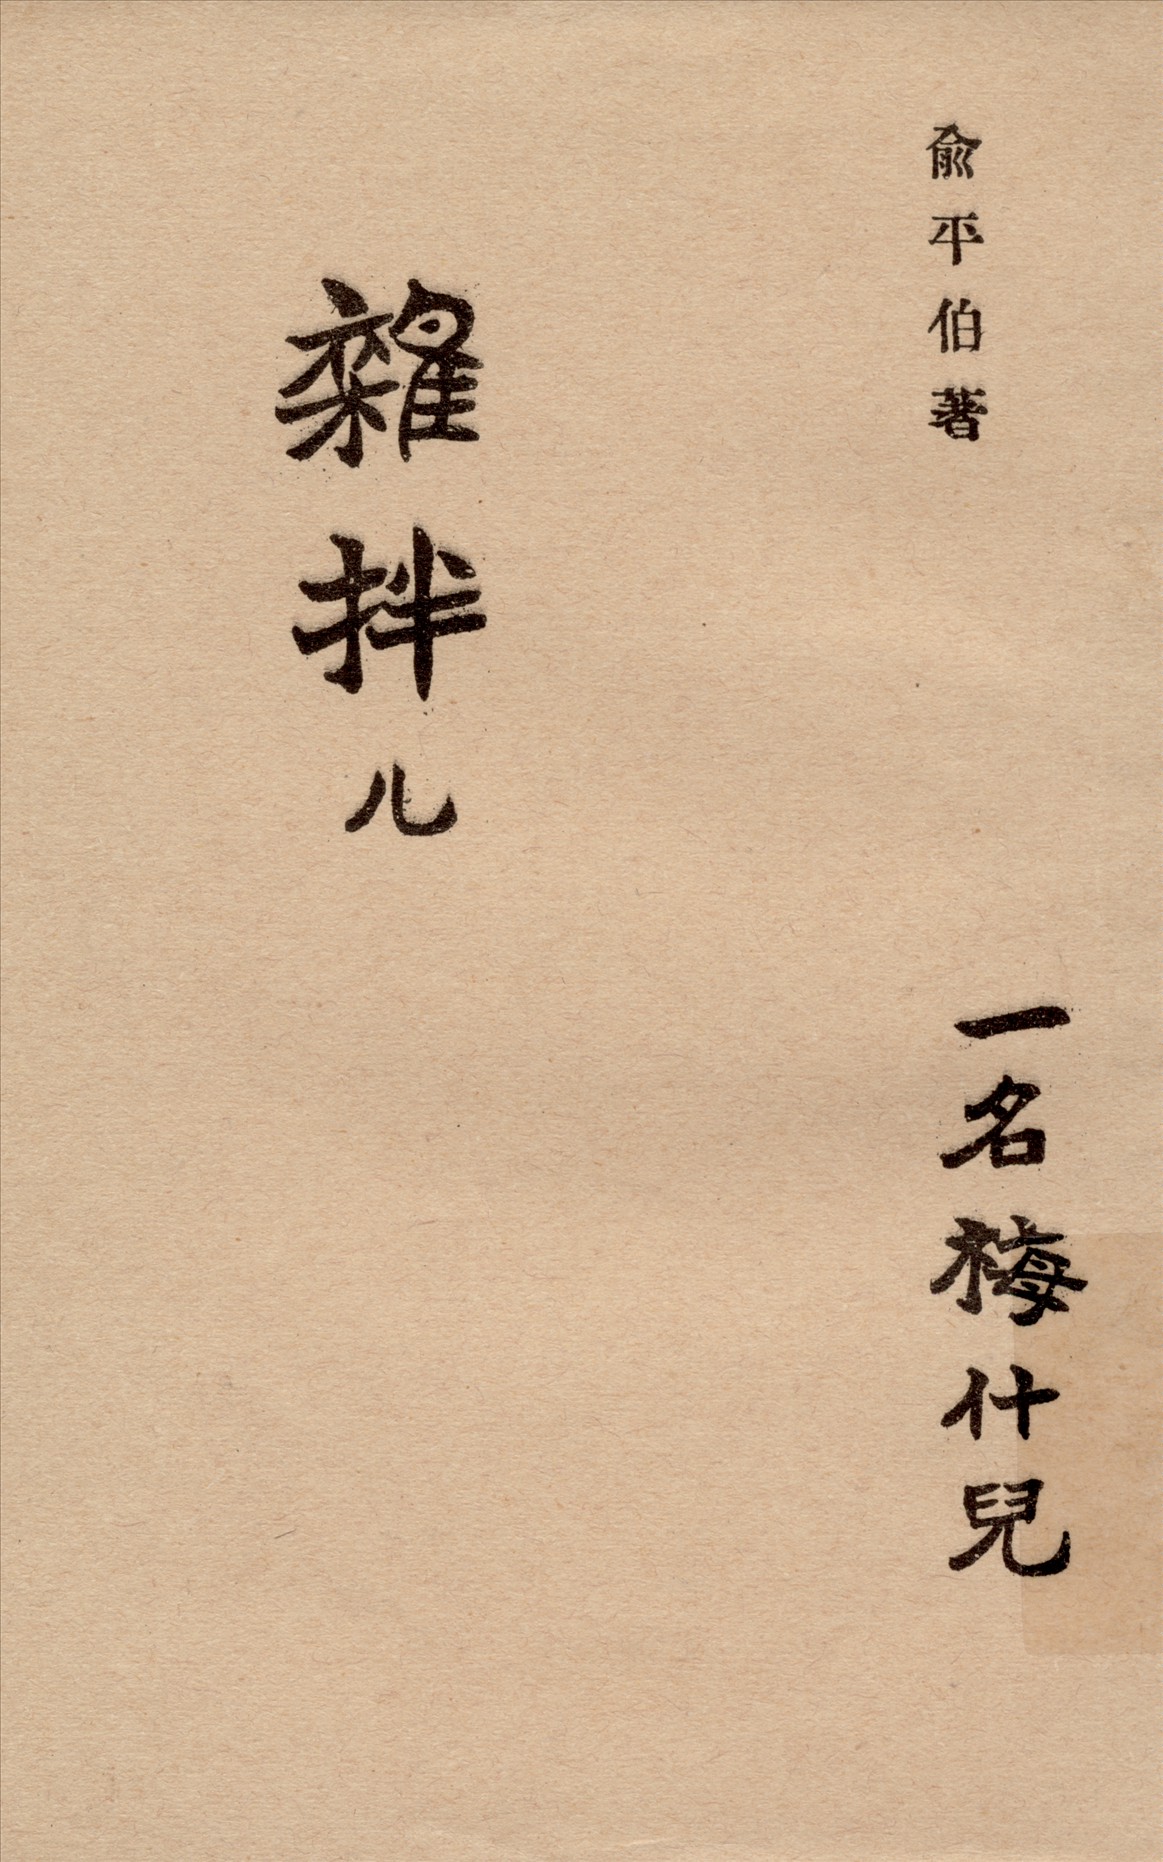 俞平伯著
一名梅什兒
雜拌儿